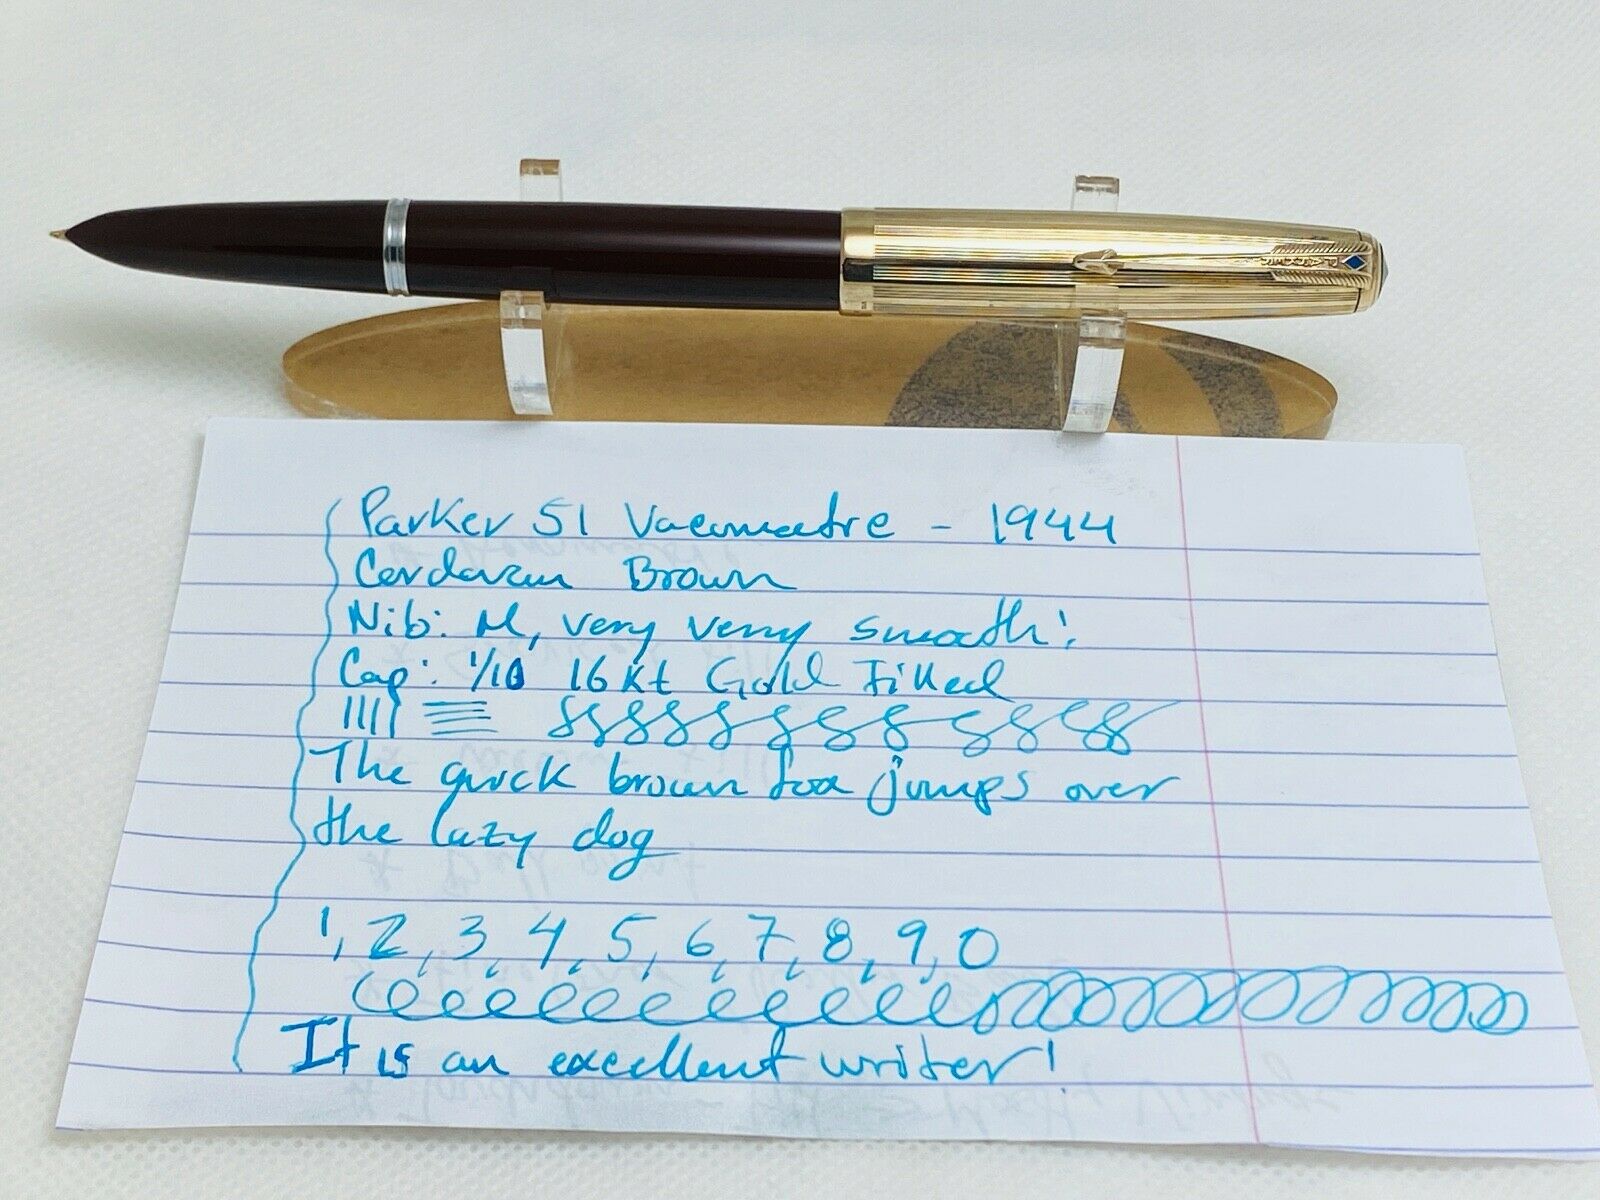 Parker 51 Vacumatre - 1944
Cordovan Brown
Nib: M, very very smooth!
Cap: 1/10 16 Kt Gold Filled
The quick brown fox jumps over
the lazy dog
1, 2, 3, 4, 5, 6, 7, 8, 9, 0
It is an excellent writer!